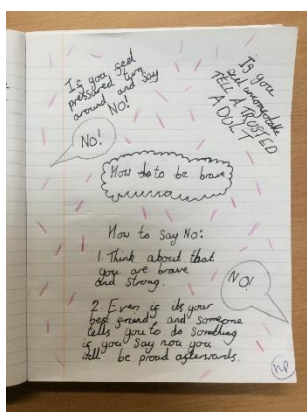 If you feel
pressured turn
around and say
NO!
If you
feel uncomfortable
TELL A TRUSTED
ADULT
NO!
How to to be brave
How to say No:
1. Think about that
you are brave
and strong.
NO!
2. Even if its your
best friend, and someone
tells you to do something
if you say no you
will be proud afterwards.
hp